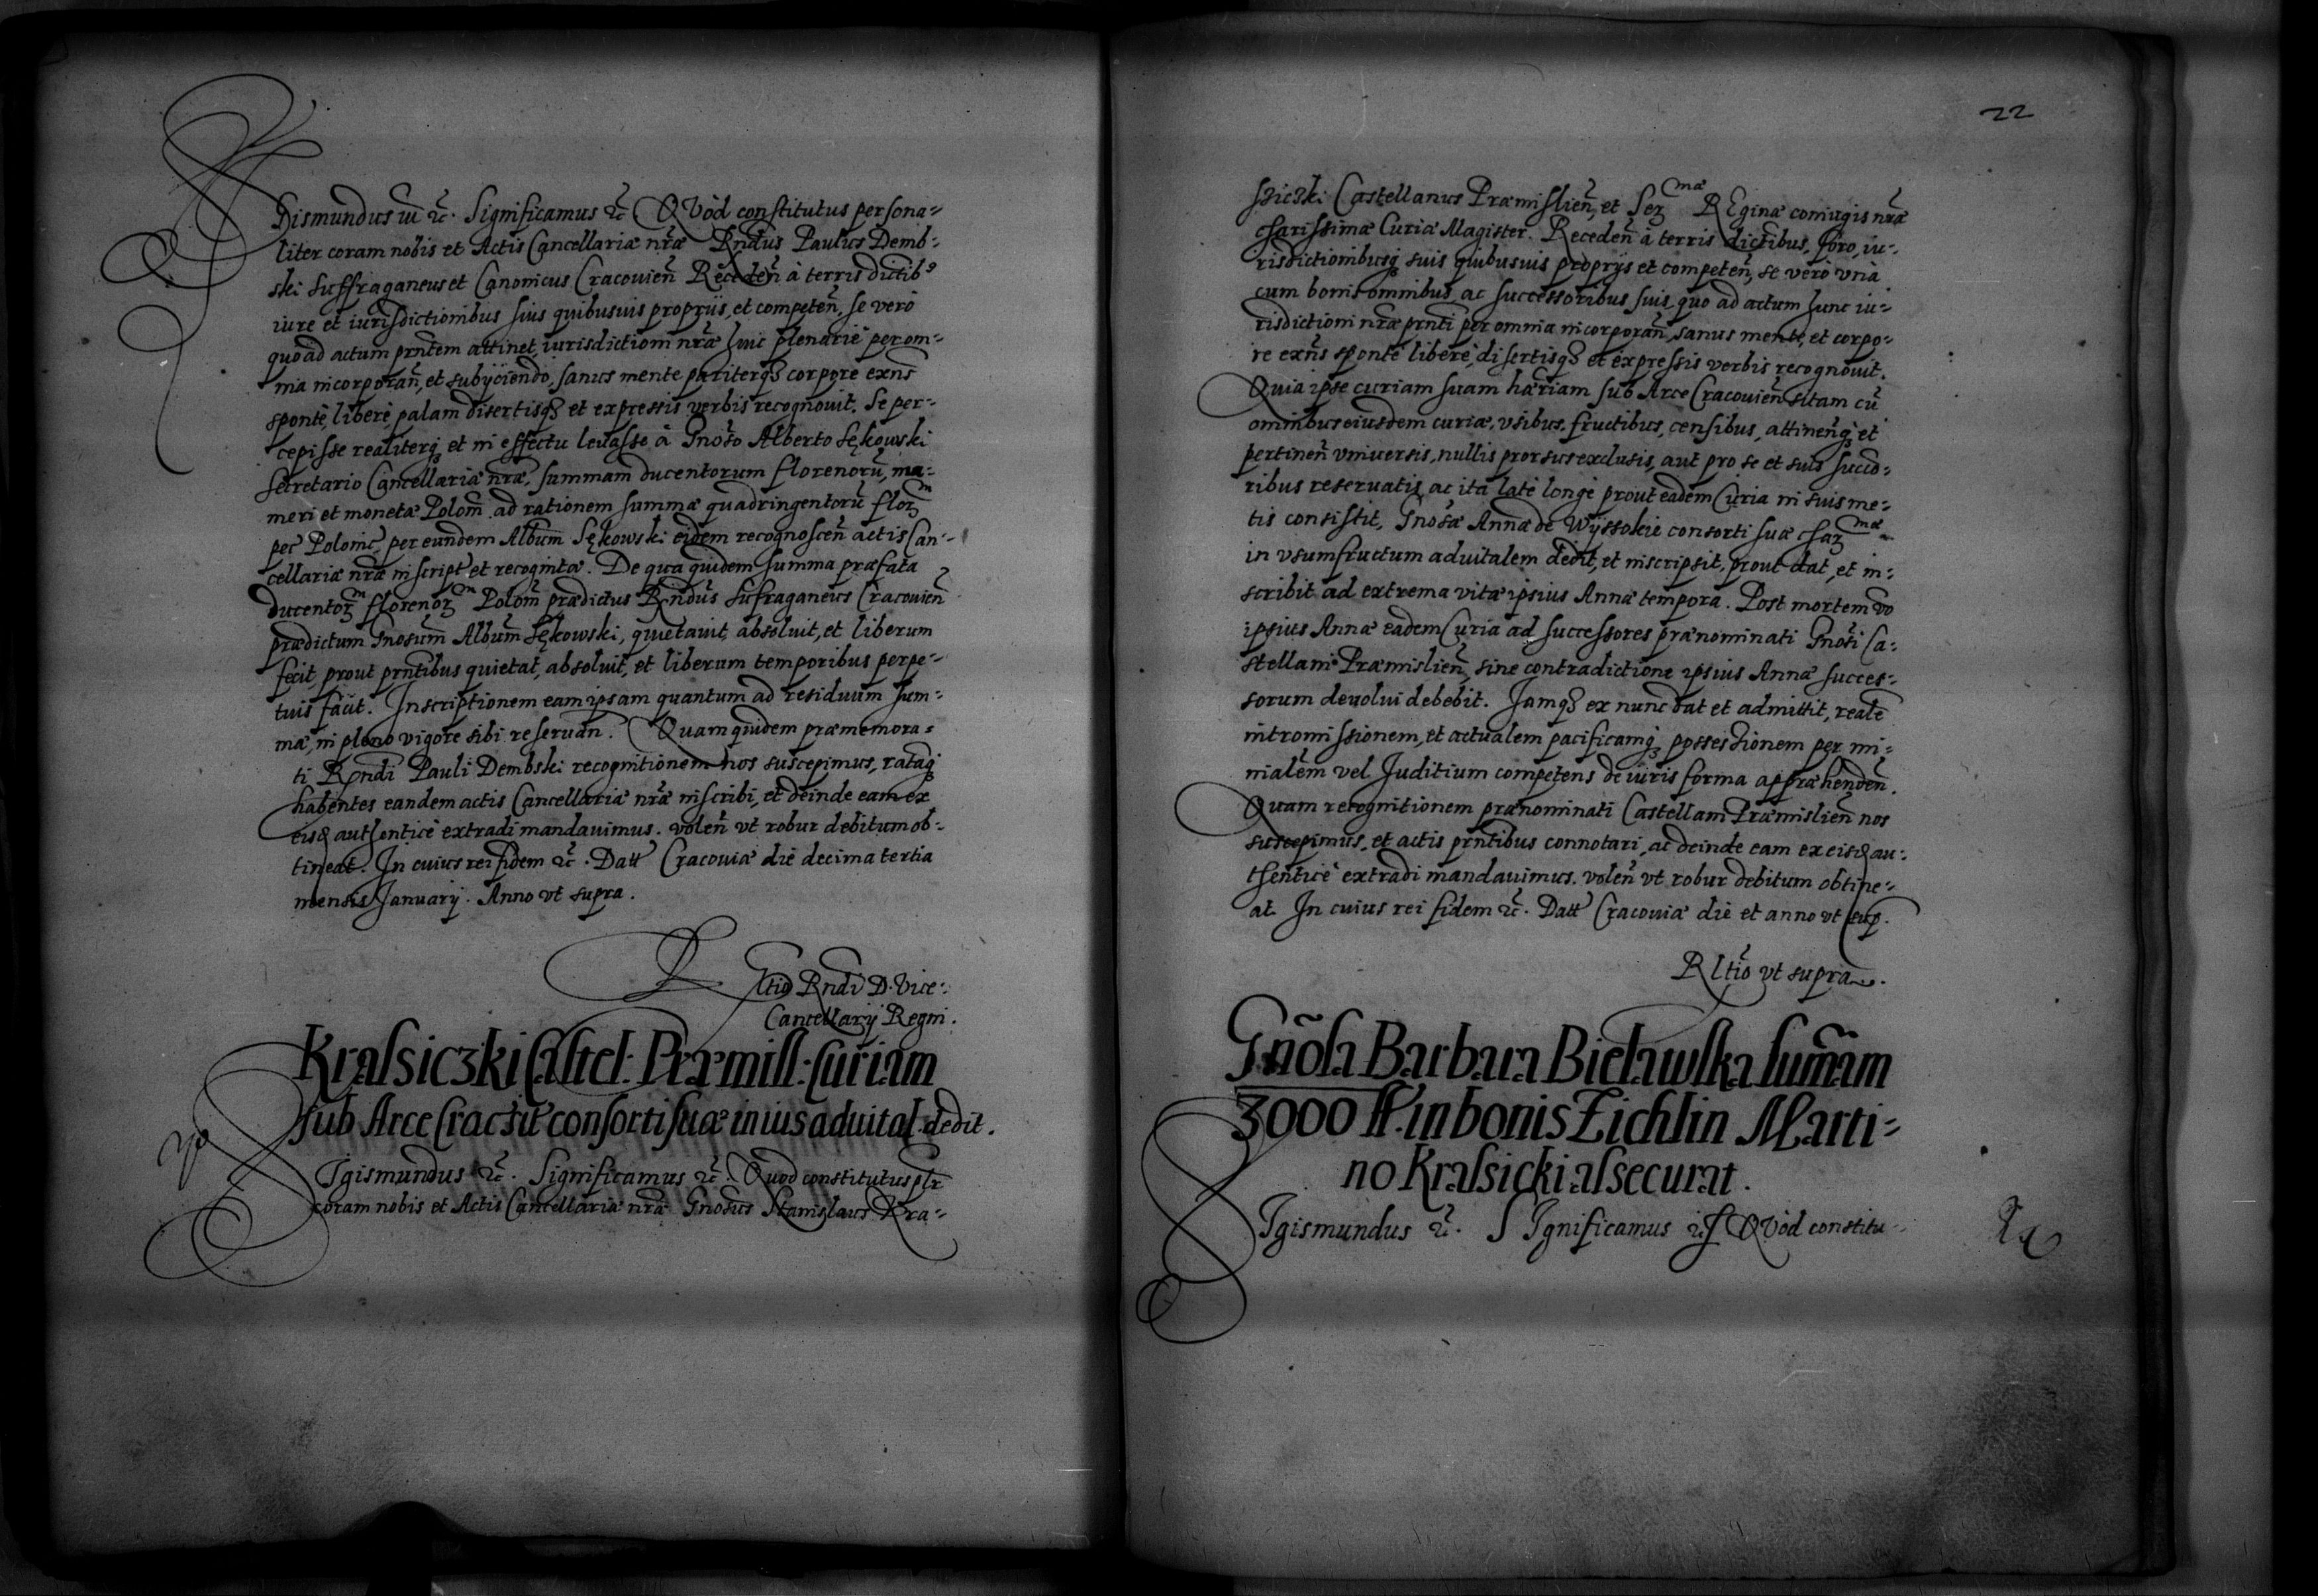 Sigismundus III etc. Significamus etc. Quod constitutus persona-
liter coram nobis et Actis Cancellariæ nr̃æ Rndus Paulus Demb-
ski Suffraganeus et Canonicus Cracouien̄ Receden̄ à terris dictib9
iure et iurisdictionibus suis quibusuis propriis, et competen̄, se verò
quo ad actum prn̄tem attinet, iurisdictioni nr̃æ huic plenariè per om-
nia incorporan̄, et subijciendo, sanus mente pariterq3 corpore exn̄s
spontè, liberè, palam disertisq3 et expressis verbis recognouit. Se per-
cepisse realiterq3 et in effectu leuasse à Gnoso Alberto Sękowski
Secretario Cancellariæ nr̃æ, summam ducentorum florenorū, nu-
meri et monetæ Polon̄. ad rationem summæ quadringentorū florm
pec Polonic, per eundem Albūm Sękowski eidem recognoscen̄ actis Can-
cellariæ nr̃æ inscript et recognitæ. De qua quidem summa præfata
ducentorm florenorm Polon̄ prædictus Rndus Sufraganeus Cracouien̄
prædictum Gnosum Albūm Sękowski, quietauit, absoluit, et liberum
fecit, prout prn̄tibus quietat, absoluit, et liberum temporibus perpe-
tuis facit. Inscriptionem eam ipsam quantum ad residuum sum-
mæ, in pleno vigore sibi reseruan̄. Quam quidem præmemora-
ti Rndi Pauli Dembski recognitionem nos suscepimus, ratāq3
habentes eandem actis Cancellariæ nr̃æ inscribi, et deinde eam ex
eisd authenticè extradi mandauimus. volen̄ vt robur debitum ob-
tineat. In cuius rei fidem etc. Datt Cracouiæ die decima tertia
mensis Januarij. Anno vt supra.
Rltio Rndi D. Vice-
Cancellarij Regni.
Krassiczki Castel: Præmisl: Curiam
sub Arce Crac sit consorti suæ in ius aduital. dedit.
Sigismundus etc. Significamus etc. Quod constitutus plr
coram nobis et Actis Cancellariæ nr̃æ Gnosus Stanislaus Kra-
22
ssiczki Castellanus Præmislien̄, et Sermæ REginæ coniugis nr̃æ
charissimæ Curiæ Magister. Receden̄ à terris dictibus, foro, iu-
risdictionibusq3 suis quibusuis proprijs et competen̄, se verò vnà
cum bonis omnibus ac successoribus suis quo ad actum hunc iu-
risdictioni nr̃æ prn̄ti per omnia incorporan̄, sanus mente, et corpo-
re exn̄s spontè liberè, disertisq3 et expressis verbis recognouit.
Quia ipse curiam suam hæriam sub Arce Cracouien̄ sitam cū
omnibus eiusdem curiæ, vsibus, fructibus, censibus, attinen̄q3 et
pertinen̄ vniuersis, nullis prorsus exclusis, aut pro se et suis succo-
ribus reseruatis, ac ita latè longè prout eadem Curia in suis me-
tis consistit, Gnosæ Annæ de Wyssokie consorti suæ charmæ
in vsumfructum aduitalem dedit, et inscripsit, prout dat, et in-
scribit ad extrema vitæ ipsius Annæ tempora. Post mortem vo
ipsius Annæ eadem Curia ad successores prænominati Gnosi Ca-
stellani Præmislien̄, sine contradictione ipsius Annæ succes-
sorum deuolui debebit. Jamq3 ex nunc dat et admittit, realē
intromissionem, et actualem pacificamq3 possessionem per mi-
nialem vel Juditium competens de iuris forma appræhenden̄.
Quam recognitionem prænominati Castellani Præmislien̄ nos
suscepimus, et actis prn̄tibus connotari, ac deinde eam ex eisd au-
thenticè extradi mandauimus. volen̄ vt robur debitum obtine-
at. In cuius rei fidem etc. Datt Cracouiæ die et anno vt sup.
Rltio vt supra.
Gn̄osa Barbara Bielawska sum̄am
3000 fl. in bonis Zichlin Marti-
no Krassicki assecurat.
Sigismundus etc. SIgnificamus etc. QVod constitu-